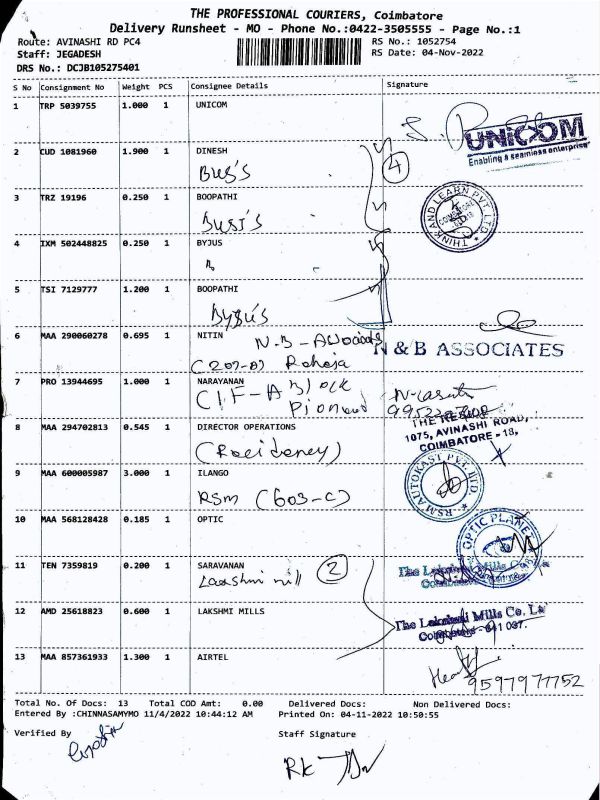 THE PROFESSIONAL COURIERS, Coimbatore
Delivery Runsheet - MO - Phone No.:0422-3505555 - Page No.:1
Route: AVINASHI RD PC4 RS No.: 1052754
Staff: JEGADESH RS Date: 04-Nov-2022
DRS No.: DCJB105275401
S No Consignment No Weight PCS Consignee Details Signature
1 TRP 5039755 1.000 1 UNICOM
UNICOM
Enabling a seamless enterprise
2 CUD 1081960 1.900 1 DINESH
4
3 TRZ 19196 0.250 1 BOOPATHI
THINK AND LEARN PVT. LTD.
4 IXM 502448825 0.250 1 BYJUS
5 TSI 7129777 1.200 1 BOOPATHI
Byju's
6 MAA 290060278 0.695 1 NITIN
N.B - Raheja
N & B ASSOCIATES
7 PRO 13944695 1.000 1 NARAYANAN
C1F - A Block
8 MAA 294702813 0.545 1 DIRECTOR OPERATIONS
(Residency)
1075, AVINASHI ROAD,
COIMBATORE - 18,
9 MAA 600005987 3.000 1 ILANGO
RSM (603-C)
RSM AUTOKAST PVT. LTD.
10 MAA 568128428 0.185 1 OPTIC
OPTIC PLANET
11 TEN 7359819 0.200 1 SARAVANAN
Lakshmi mill 2
The Lakshmi Mills Co.
12 AMD 25618823 0.600 1 LAKSHMI MILLS
The Lakshmi Mills Co. Ltd
Coimbatore - 641 037.
13 MAA 857361933 1.300 1 AIRTEL
9597977752
Total No. Of Docs: 13 Total COD Amt: 0.00 Delivered Docs: Non Delivered Docs:
Entered By :CHINNASAMYMO 11/4/2022 10:44:12 AM Printed On: 04-11-2022 10:50:55
Verified By Staff Signature
RK